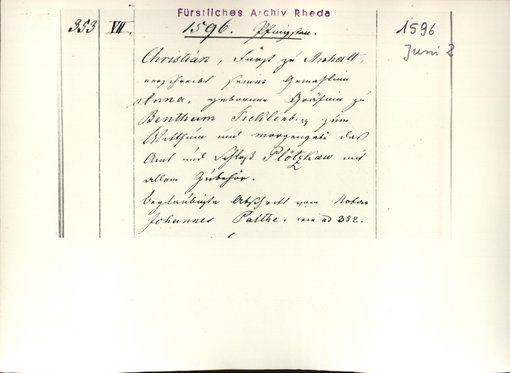 Fürstliches Archiv Rheda
353 VII 1596. Pfingsten. 1596
Juni 2
Christian, Fürst zu Anhalt,
verschreibt seiner Gemahlin
Anna, geborner Gräfin zu
Bentheim Tecklenburg zum
Witthum und morgengabe das
Amt und Schloß Plötzkau mit
allem Zubehör.
beglaubigte Abschrift vom Notar
Johannes Palthe. ad 352.